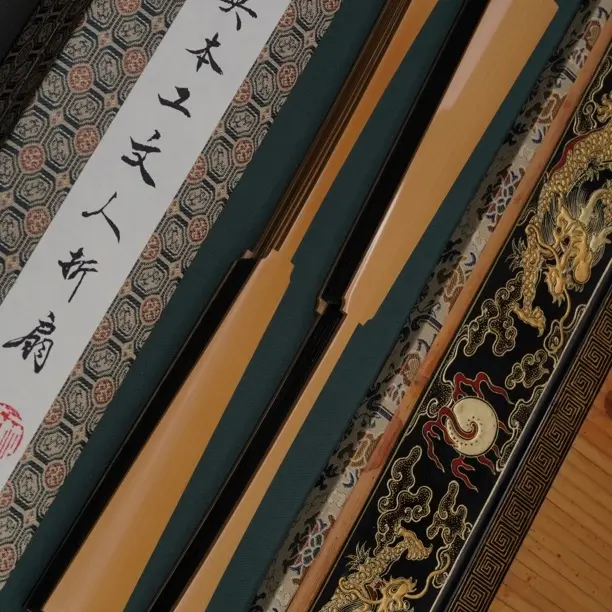 本工文人折扇